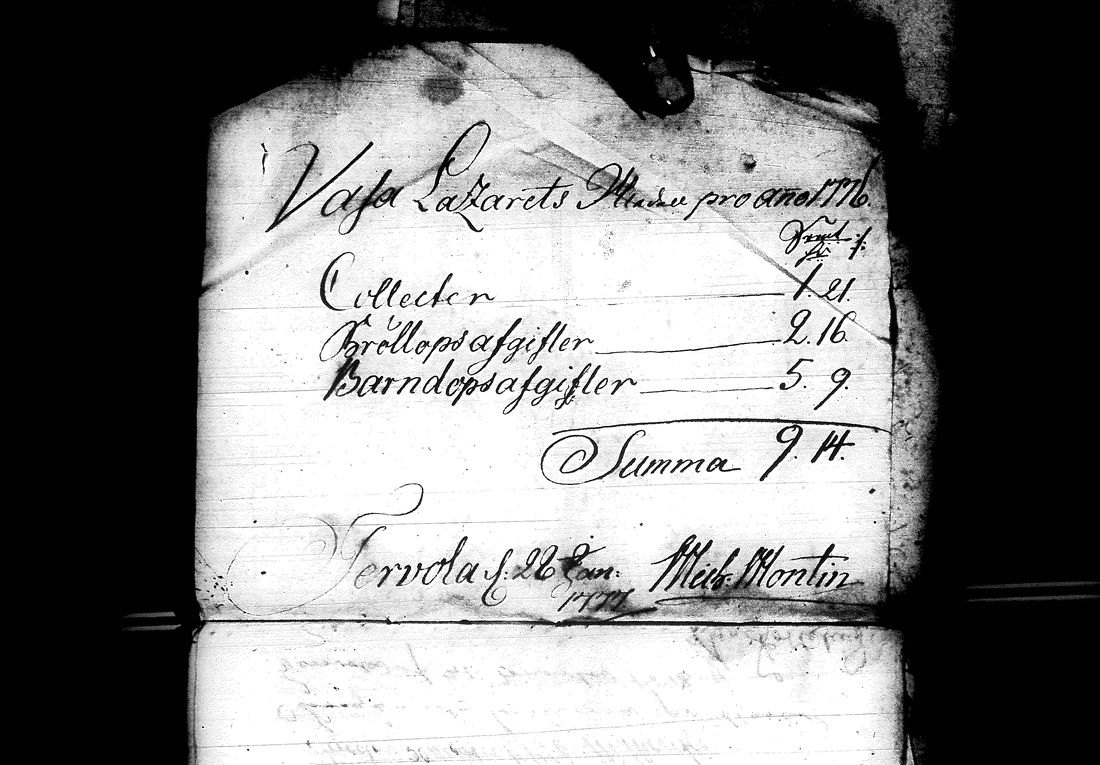 Vasa Lazarets pro año 1776.
Collecter 1. 21.
Bröllops afgifter 2. 16.
Barndops afgifter 5. 9.
Summa 9. 14.
Tervola d. 28 Jan: Mich. Montin
1777